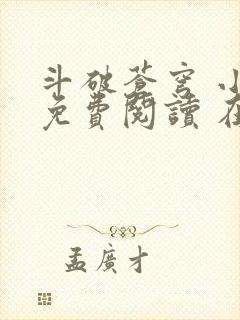 斗破蒼穹 小
免費閱讀 在
孟廣才